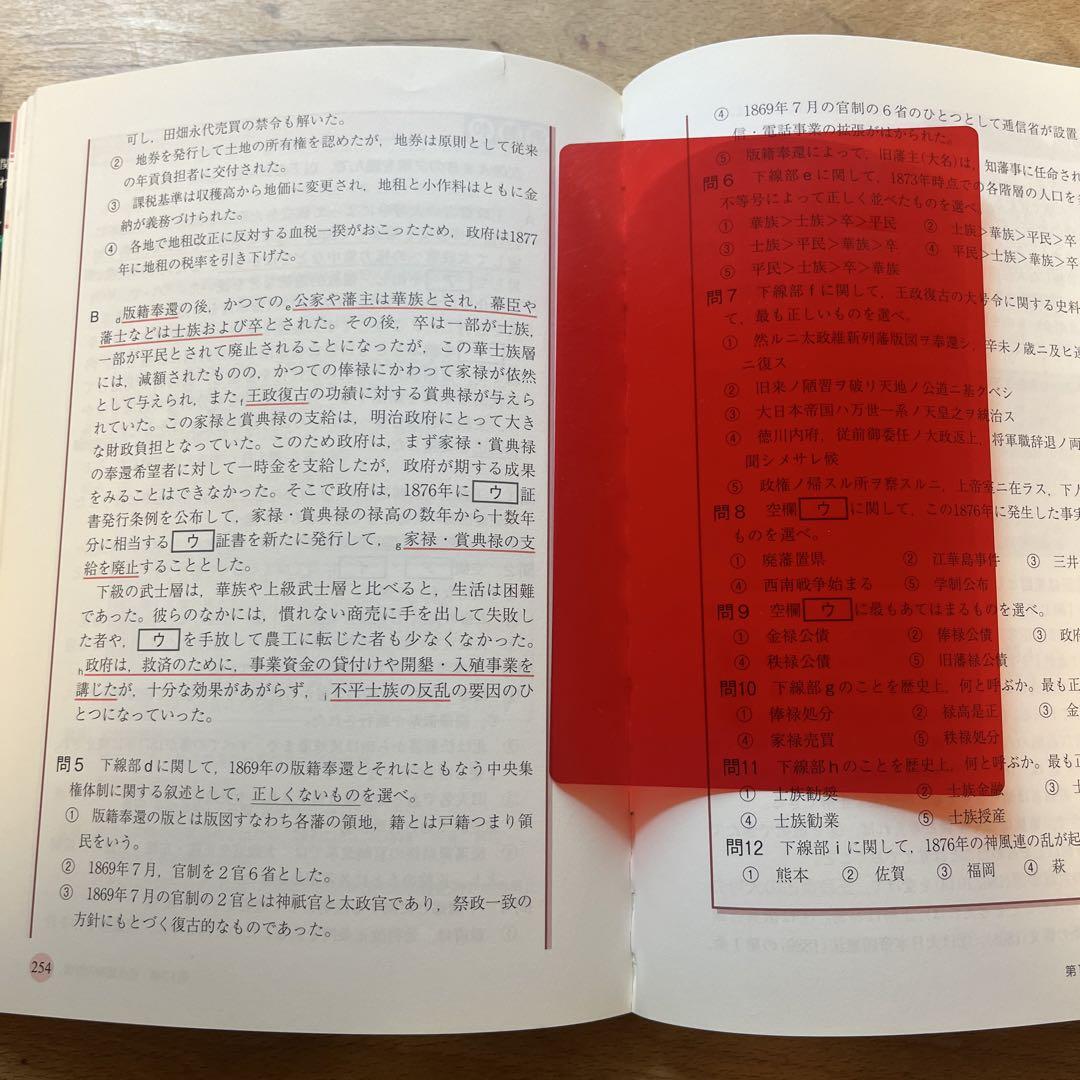 可し，田畑永代売買の禁令も解いた。
② 地券を発行して土地の所有権を認めたが，地券は原則として従来
の年貢負担者に交付された。
③ 課税基準は収穫高から地価に変更され，地租と小作料はともに金
納が義務づけられた。
④ 各地で地租改正に反対する血税一揆がおこったため，政府は1877
年に地租の税率を引き下げた。
B d版籍奉還の後，かつてのe公家や藩主は華族とされ，幕臣や
藩士などは士族および卒とされた。その後，卒は一部が士族，
一部が平民とされて廃止されることになったが，この華士族層
には，減額されたものの，かつての俸禄にかわって家禄が依然
として与えられ，またf王政復古の功績に対する賞典禄が与えら
れていた。この家禄と賞典禄の支給は，明治政府にとって大き
な財政負担となっていた。このため政府は，まず家禄・賞典禄
の奉還希望者に対して一時金を支給したが，政府が期する成果
をみることはできなかった。そこで政府は，1876年に ウ 証
書発行条例を公布して，家禄・賞典禄の禄高の数年から十数年
分に相当する ウ 証書を新たに発行して，g家禄・賞典禄の支
給を廃止することとした。
下級の武士層は，華族や上級武士層と比べると，生活は困難
であった。彼らのなかには，慣れない商売に手を出して失敗し
た者や， ウ を手放して農工に転じた者も少なくなかった。
h政府は，救済のために，事業資金の貸付けや開墾・入殖事業を
講じたが，十分な効果があがらず，i不平士族の反乱の要因のひ
とつになっていった。
問5 下線部dに関して，1869年の版籍奉還とそれにともなう中央集
権体制に関する叙述として，正しくないものを選べ。
① 版籍奉還の版とは版図すなわち各藩の領地，籍とは戸籍つまり領
民をいう。
② 1869年7月，官制を2官6省とした。
③ 1869年7月の官制の2官とは神祇官と太政官であり，祭政一致の
方針にもとづく復古的なものであった。
254
④ 1869年7月の官制の6省のひとつとして逓信省が設置
信・電話事業の拡張がはかられた。
⑤ 版籍奉還によって，旧藩主(大名)は，知藩事に任命され
問6 下線部eに関して，1873年時点での各階層の人口を
不等号によって正しく並べたものを選べ。
① 華族＞士族＞卒＞平民 ② 士族＞華族＞平民＞卒
③ 士族＞平民＞華族＞卒 ④ 平民＞士族＞華族＞卒
⑤ 平民＞士族＞卒＞華族
問7 下線部fに関して，王政復古の大号令に関する史料
て，最も正しいものを選べ。
① 然ルニ太政維新列藩版図ヲ奉還シ，辛未ノ歳ニ及ヒ
ニ復ス
② 旧来ノ陋習ヲ破リ天地ノ公道ニ基クベシ
③ 大日本帝国ハ万世一系ノ天皇之ヲ統治ス
④ 徳川内府，従前御委任ノ大政返上，将軍職辞退ノ両
聞シメサレ候
⑤ 政権ノ帰スル所ヲ察スルニ，上帝室ニ在ラス，下人
問8 空欄 ウ に関して，この1876年に発生した事実
ものを選べ。
① 廃藩置県 ② 江華島事件 ③ 三井
④ 西南戦争始まる ⑤ 学制公布
問9 空欄 ウ に最もあてはまるものを選べ。
① 金禄公債 ② 俸禄公債 ③ 政府
④ 秩禄公債 ⑤ 旧藩禄公債
問10 下線部gのことを歴史上，何と呼ぶか。最も正
① 俸禄処分 ② 禄高是正 ③ 金
④ 家禄売買 ⑤ 秩禄処分
問11 下線部hのことを歴史上，何と呼ぶか。最も正
① 士族勧奨 ② 士族金融 ③ 士
④ 士族勧業 ⑤ 士族授産
問12 下線部iに関して，1876年の神風連の乱が起
① 熊本 ② 佐賀 ③ 福岡 ④ 萩
第